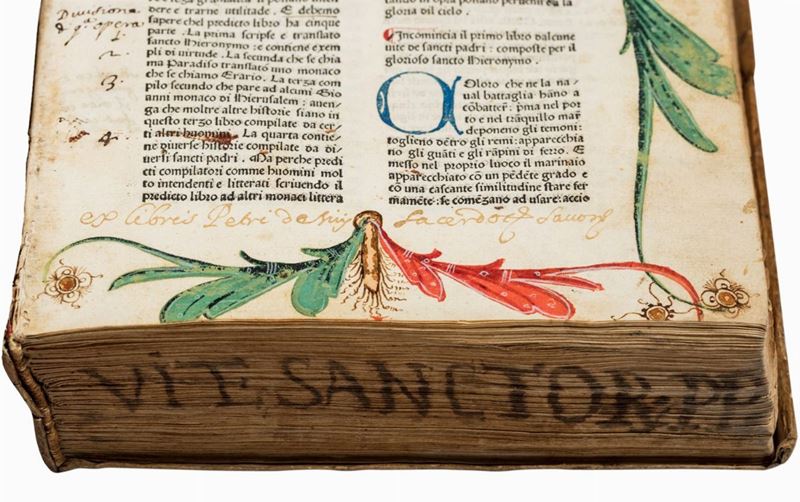 Divisione
dere e trarne utilitade . E debemo
sapere che l predicto libro ha cinque
parte . La prima scripse e translato
sancto Hieronymo : e contiene exem
pli di virtude . La secunda che se chia
ma Paradiso translato uno monaco
che se chiamo Erario. La terza com
pilo secundo che pare ad alcuni Gio
anni monaco di Hierusalem : aduen
ga che moltre altre historie siano in
questo terzo libro compilate da cer
ti altri huomini . La quarta contie
ne diuerse historie compilate da di
uersi sancti padri . Ma perche predi
cti compilatori comme huomini mol
to intendenti e litterati scriuendo il
predicto libro ad altri monaci littera
2.
3.
4.
gloria dil cielo .
Incomincia il primo libro dalcune
uite de sancti padri : composte per il
glorioso sancto Hieronymo .
Coloro che ne la na
ual battaglia hāno a
cōbatter : pma nel por
to e nel trāquillo mar
deponeno gli temoni :
toglieno dētro gli remi : apparecchia
no gli guāti e gli rāpini di ferro . E
messo nel proprio luoco il marinaio
apparecchiato cō un pēdēte grado e
cō una cascante similitudine stare fer
mamēte : se comēzano ad usare : accio
ex libris Petri de sacerdotis
VITE SANCTOR. PP